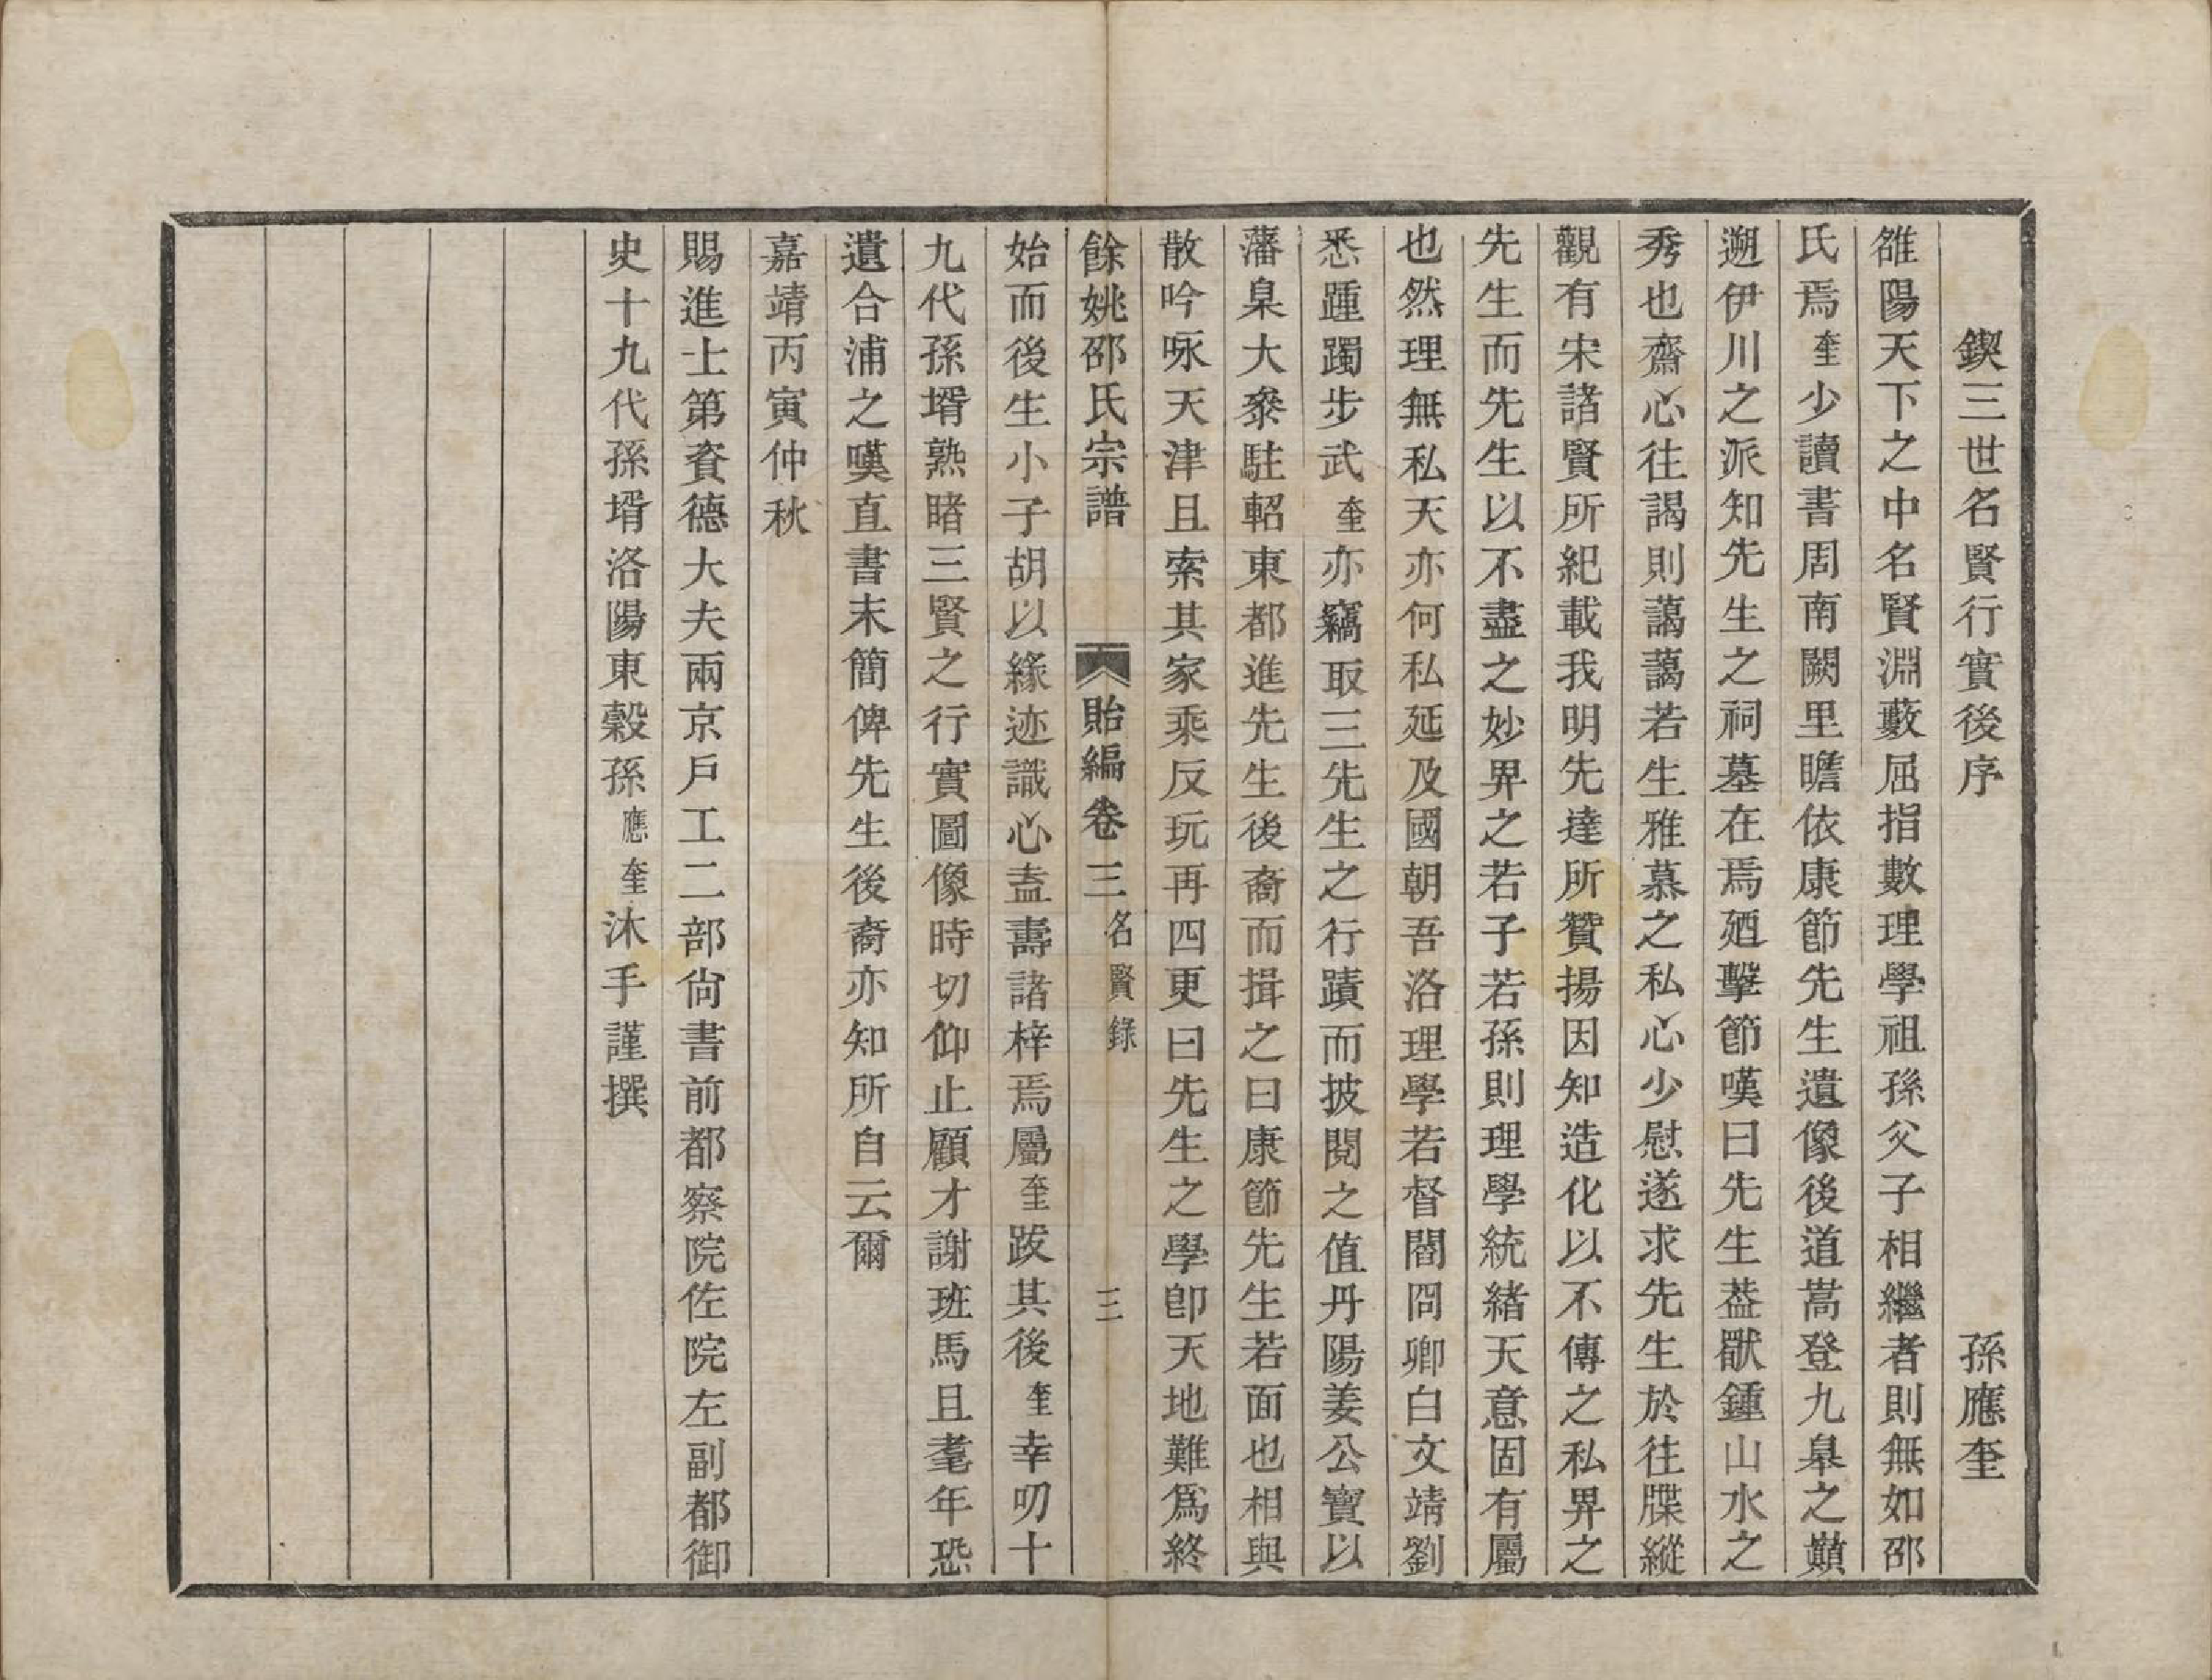 鍥三世名賢行實後序　孫應奎
雒陽天下之中名賢淵藪屈指數理學祖孫父子相繼者則無如邵
氏焉奎少讀書周南闕里瞻依康節先生遺像後道嵩登九皋之巔
遡伊川之派知先生之祠墓在焉廼擊節嘆曰先生葢厭鍾山水之
秀也齋心往謁則藹藹若生雅慕之私心少慰遂求先生於往牒縱
觀有宋諸賢所紀載我明先達所贊揚因知造化以不傳之私畀之
先生而先生以不盡之妙畀之若子若孫則理學統緒天意固有屬
也然理無私天亦何私延及國朝吾洛理學若督閻冏卿白文靖劉
悉踵躅步武奎亦竊取三先生之行蹟而披閱之值丹陽姜公寶以
藩臬大叅駐軺東都進先生後裔而揖之曰康節先生若面也相與
散吟咏天津且索其家乘反玩再四更曰先生之學卽天地難爲終
餘姚邵氏宗譜　貽編卷三　名賢錄　三
始而後生小子胡以緣迹識心盍壽諸梓焉屬奎跋其後奎幸叨十
九代孫壻熟睹三賢之行實圖像時切仰止顧才謝班馬且耄年恐
遺合浦之嘆直書末簡俾先生後裔亦知所自云爾
嘉靖丙寅仲秋
賜進士第資德大夫兩京戶工二部尙書前都察院佐院左副都御
史十九代孫壻洛陽東穀孫應奎沐手謹撰